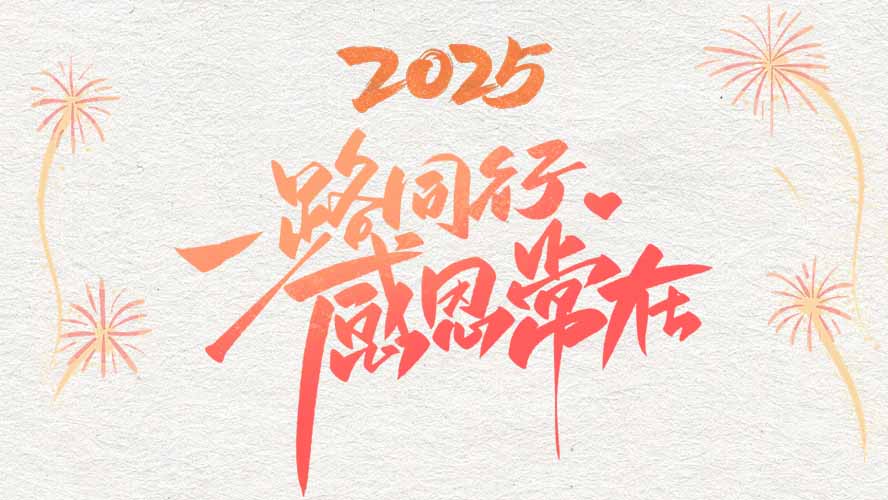 2025
一路同行
感恩常在